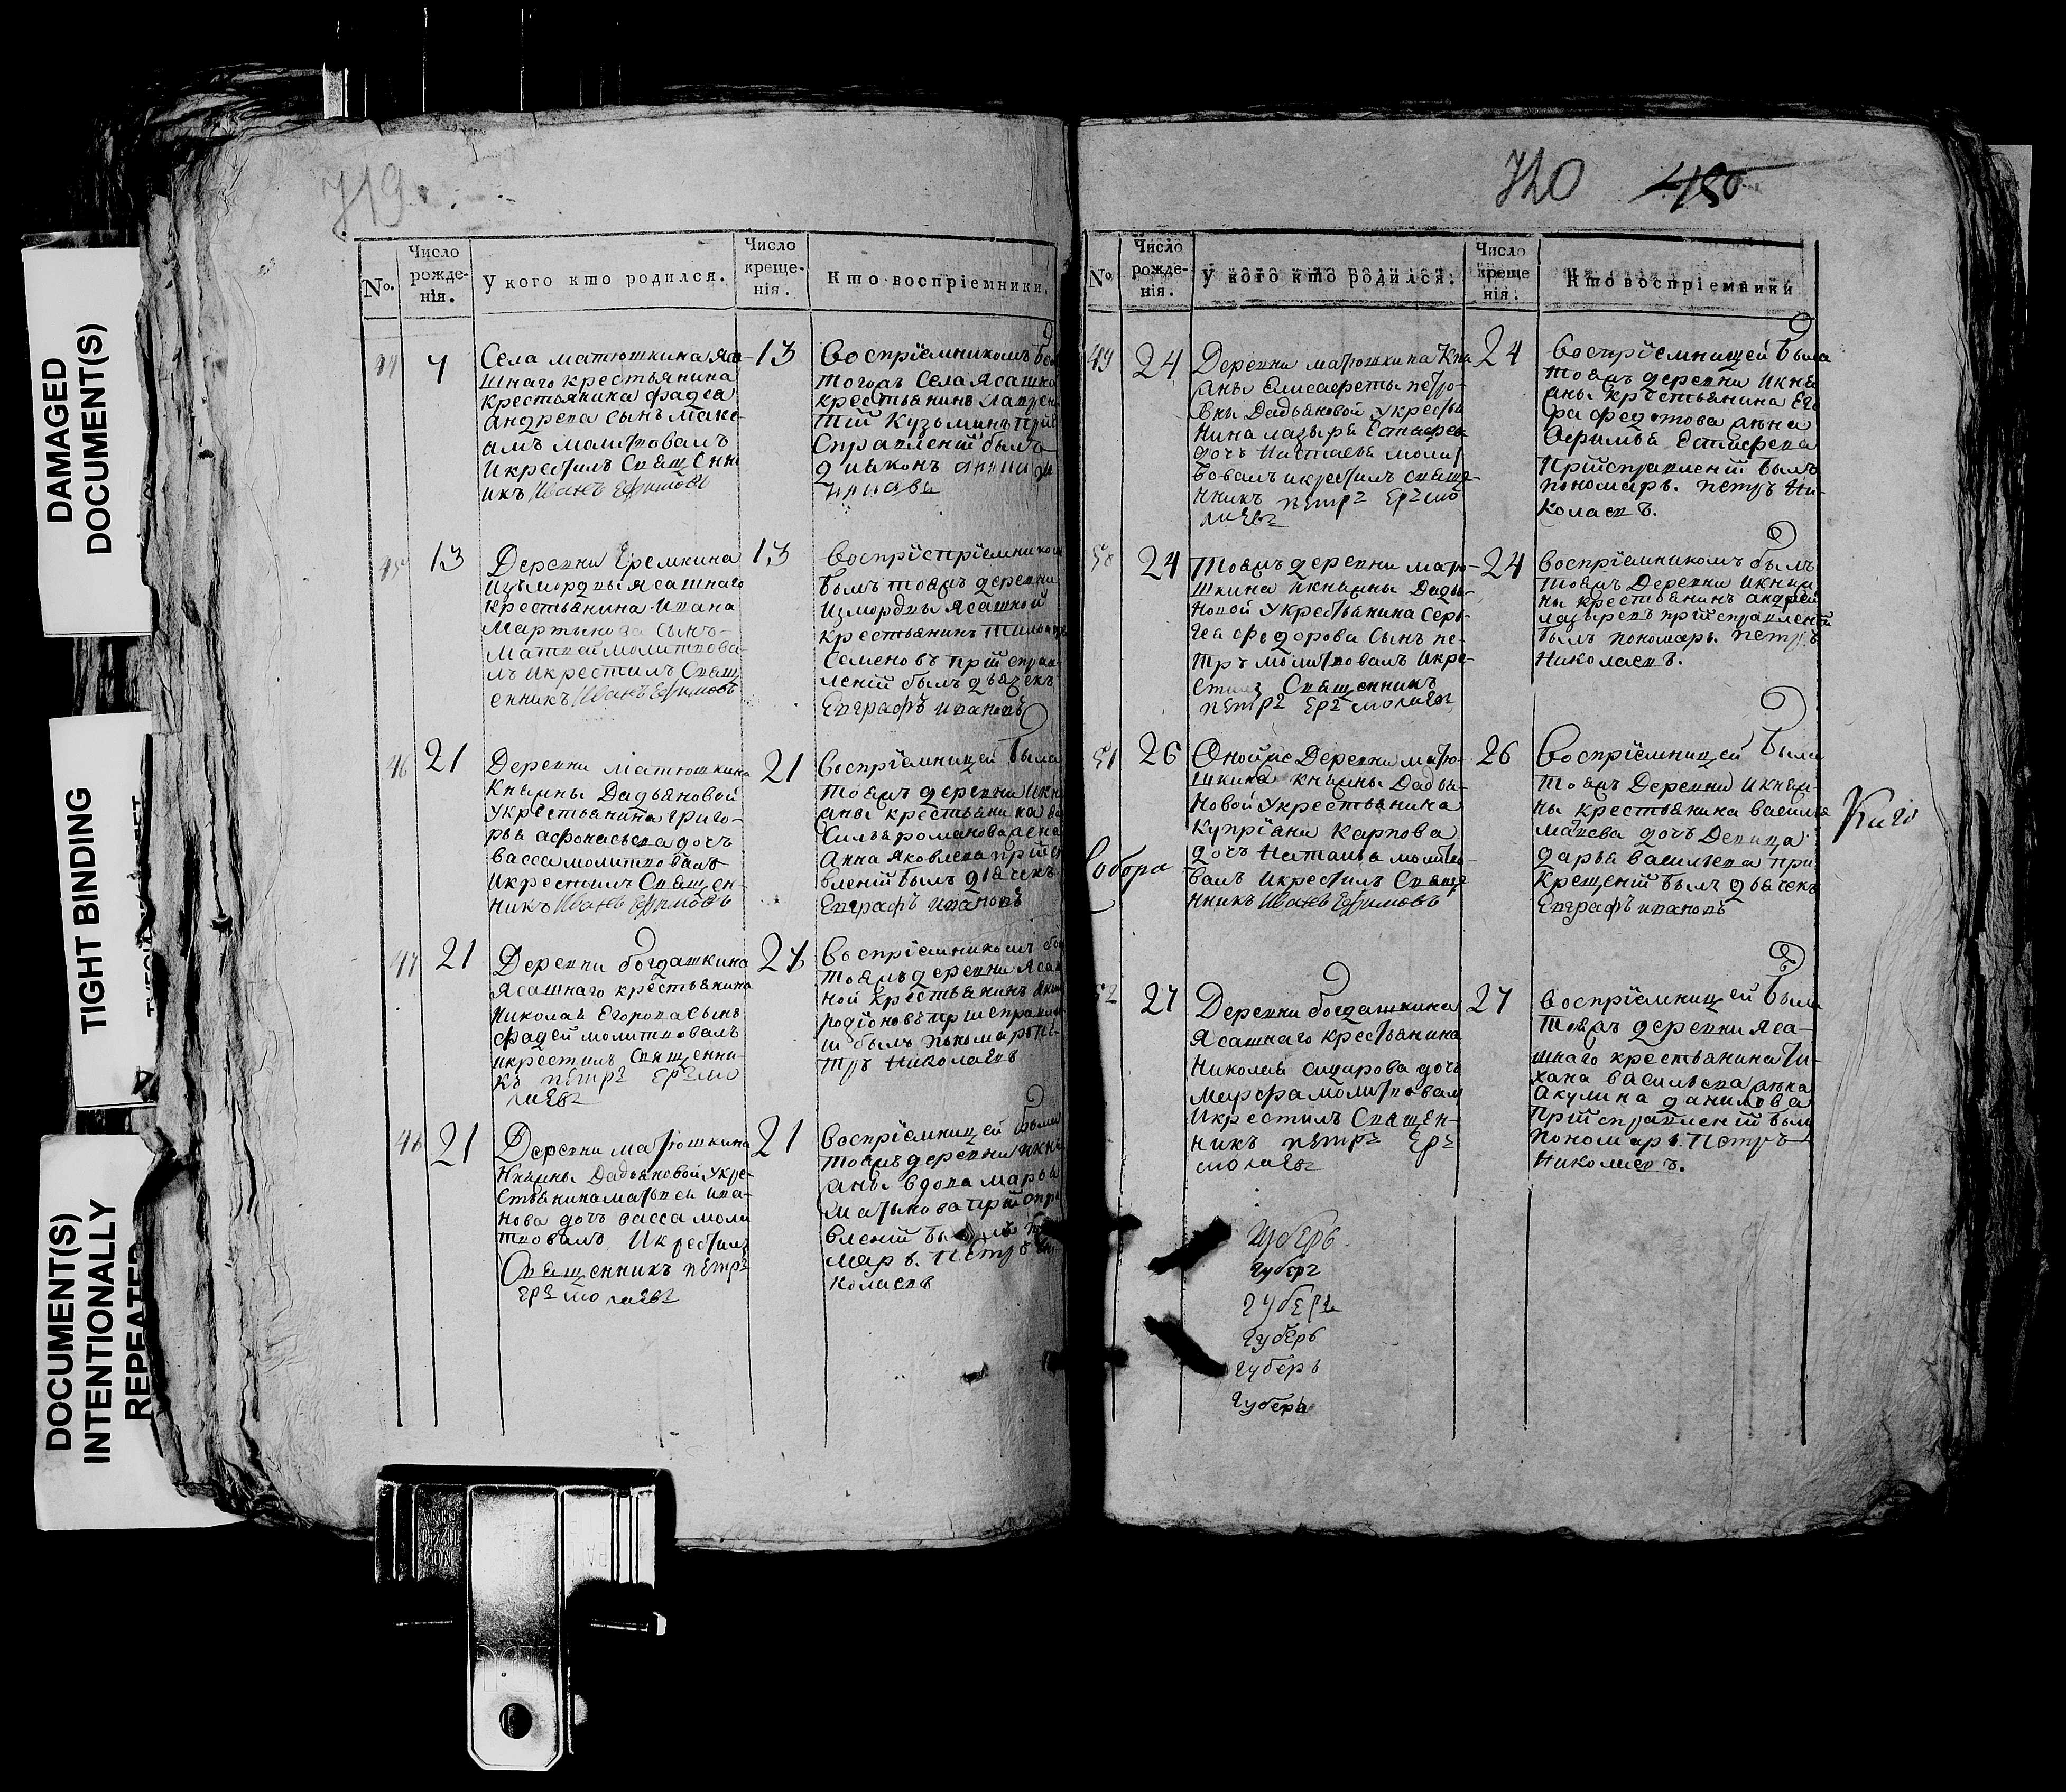 DAMAGED
DOCUMENT(S)
TIGHT BINDING
DOCUMENT(S)
INTENTIONALLY
REPEATED
719
№.
Число рожде-нія.
У кого кто родился.
Число креще-нія.
Кто воспріемники.
44
4
Села матюшкина яса-
шнаго крестьянина
крестьянина фадеа
андреева сынъ макс-
имъ молитвовалъ
и крестилъ Священн
икъ Иванъ Ефимовъ
13
Воспріемникомъ
тогожъ Села Ясашно
крестьянинъ лаврен
тій Кузьминъ при
Справленіи былъ
діаконъ
45
13
Деревни Еремкина
изъ мордвы ясашнаго
крестьянина ивана
Мартынова сынъ
Матвай молитвова-
лъ и крестилъ Свящ
енникъ Иванъ Ефимовъ
13
Воспріспріемником
былъ тояжъ деревни
из мордвы ясашной
крестьянинъ
Семеновъ при справ-
леніи былъ дьячекъ
Евграфъ ивановъ
46
21
Деревни матюшкина
Княжны Дадьяновой
у крестьянина григо-
рья афонасьева дочь
васса молитвовалъ
и крестилъ Священ-
никъ Иванъ Ефимовъ
21
Воспріемницей была
тояжъ деревни и кня
жны крестьянина ва
силья романова жена
Анна Яковлева при
вленіи былъ дьячекъ
Евграфъ ивановъ
47
21
Деревни богдашкина
Ясашнаго крестьянина
Николая Егорова сынъ
фадей молитвовалъ
и крестилъ Священни-
къ петръ Еръмо
лаевъ
21
Воспріемникомъ бы
тояжъ деревни Ясаш
ной крестьянинъ
родіоновъ при справле
и былъ пономарь пе-
тръ Николаевъ
48
21
Деревни матюшкина
Княжны Дадьяновой у кре-
стьянина матвея ива-
нова дочь васса моли
твовалъ и крестилъ
Священникъ петръ
Еръмолаевъ
21
Воспріемницей была
тояжъ деревни и кня
жны вдова марфа
при спра
вленіи былъ поно
марь. Петръ Ни
колаевъ
720
480
№.
Число рожде-нія.
У кого кто родился.
Число креще нія.
Кто воспріемники
49
24
Деревни матюшкина Кня
жны Елисафеты петро-
вны Дадьяновой у крестья
нина лазыря Естифеева
дочь Наталья молит
вовалъ и крестилъ свяще-
нникъ петръ Еръмо
лаевъ
24
Воспріемницей была
тояжъ деревни и кня
жны крестьянина Его
ра федотова жена
Афимья Естифеева
При справленіи былъ
пономарь. петръ Ни-
колаевъ.
50
24
Тояжъ деревни матю-
шкина и княжны Дадья-
новой у крестьянина Сер-
гея федорова Сынъ пе-
тръ молитвовалъ и кре-
стилъ Священникъ
петръ Еръмолаевъ
24
Воспріемникомъ былъ
тояжъ Деревни и княж
ны крестьянинъ андрей
лазыревъ при справленіи
былъ пономарь. петръ
Николаевъ.
51
26
Оной же Деревни матю-
шкина княжны Дадья-
новой у крестьянина
Купріяна Карпова
дочь Наталья молитво-
валъ и крестилъ Свяще
нникъ Иванъ Ефимовъ
26
Воспріемницей была
тояжъ Деревни и княж-
ны крестьянина василья
дочь Девица
дарья васильева при
крещеніи былъ дьячекъ
Евграфъ ивановъ
Собора
52
27
Деревни богдашкина
Ясашнаго крестьянина
Николая сидорова дочь
Марфа молитвовалъ
и крестилъ Священ-
никъ петръ Еръ
молаевъ
27
Воспріемницей была
тояжъ деревни яса-
шнаго крестьянина ти-
хана васильева жена
Акулина данилова
При справленіи былъ
пономарь. Петръ
Николаевъ.
губерь
губерг
губерь
губерь
губерь
губерь